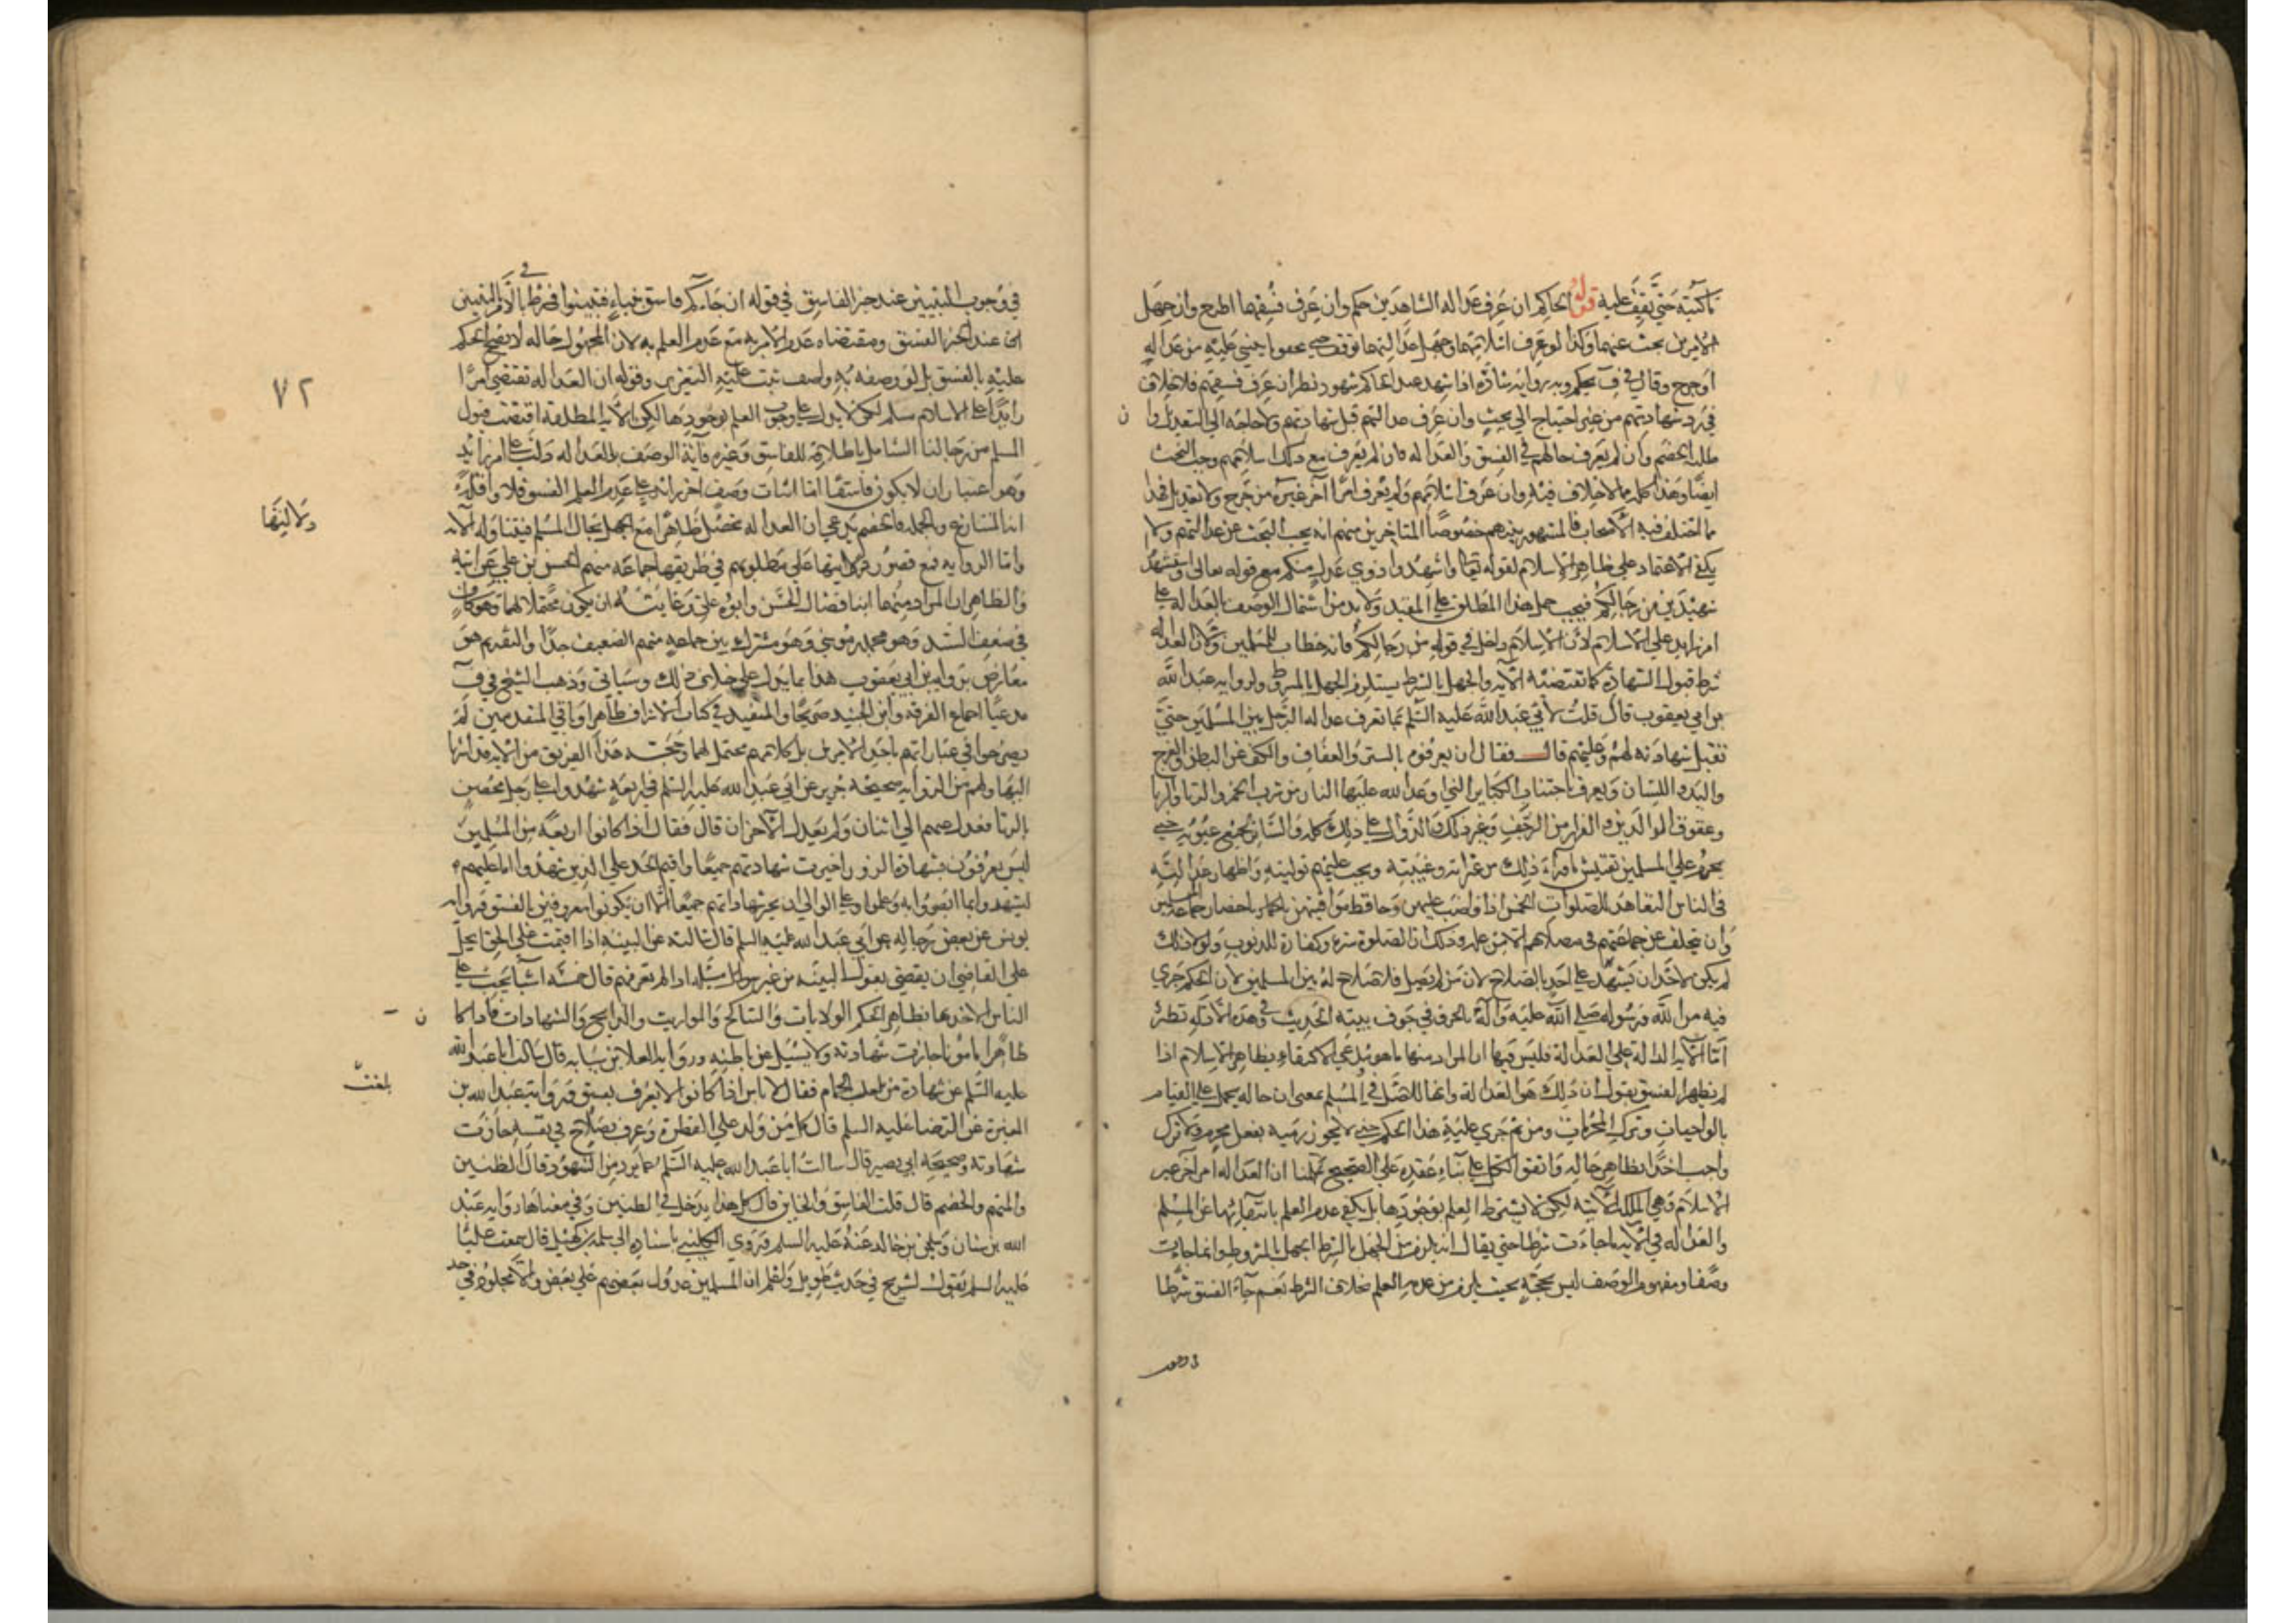 ما كتبته حتى يقف عليه قوله الحاكم ان عرف عدالة الشاهدين حكم وان عرف فسقهما اطرح وان جهل
الامرين بحث عنهما وكذا لو عرف اسلامهما وجهل عدالتهما توقف حتى يتحقق ما يبنى عليه من عدالة
او جرح وقال في ف يحكم وبه رواية شاذة اذا شهد عند الحاكم شهود نظر ان عرف فسقهم فلا خلاف
في رد شهادتهم من غير احتياج الى بحث وان عرف عدالتهم قبل شهادتهم ولا حاجة الى التعديل وان
طلبه الخصم وان لم يعرف حالهم في الفسق والعدالة فان لم يعرف مع ذلك اسلامهم وجب البحث
ايضا وهذا كله مما لا خلاف فيه وان عرف اسلامهم ولم يعرف امرا آخر غيره من جرح ولا تعديل فهذا
مما اختلف فيه الاصحاب فالمشهور بينهم خصوصا المتاخرين منهم انه يجب البحث عن عدالتهم ولا
يكفي الاعتماد على ظاهر الاسلام لقوله تعالى واشهدوا ذوي عدل منكم مع قوله تعالى واستشهدوا
شهيدين من رجالكم فيجب حمل هذا المطلق على المقيد ولا بد من اشتمال الوصف بالعدالة على
امر زايد على الاسلام لان الاسلام داخل في قوله من رجالكم فانه خطاب للمسلمين ولان العدالة
شرط قبول الشهادة كما تقتضيه الآية والجهل بالشرط يستلزم الجهل بالمشروط ولرواية عبد الله
بن ابي يعفوب قال قلت لابي عبد الله عليه السلم بما تعرف عدالة الرجل بين المسلمين حتى
تقبل شهادته لهم وعليهم قال فقال ان يعرفوه بالستر والعفاف والكف عن البطن والفرج
واليد واللسان ويعرف باجتناب الكباير التي اوعد الله عليها النار من شرب الخمر والزنا والربا
وعقوق الوالدين والفرار من الزحف وغير ذلك والدال على ذلك كله والساتر لجميع عيوبه حتى
يحرم على المسلمين تفتيش ما وراء ذلك من عثراته وغيبته ويجب عليهم توليته واظهار عدالته
في الناس التعاهد للصلوات الخمس اذا واظب عليهن وحافظ مواقيتهن باحضار جماعة المسلمين
وان لا يتخلف عن جماعتهم في مصلاهم الا من علة وذلك ان الصلوة ستر وكفارة للذنوب ولولا ذلك
لم يكن لاحد ان يشهد على احد بالصلاح لان من لم يصل فلا صلاح له بين المسلمين لان الحكم جرى
فيه من الله ورسوله صلى الله عليه وآله بالحرق في جوف بيته الحديث وفي هذه الادلة نظر
اما الآية الدالة على العدالة فليس فيها ان المراد منها ما هو مدعى الاكتفاء بظاهر الاسلام اذا
لم يظهر الفسق يقول ان ذلك هو العدالة وانها الاصل في المسلم بمعنى ان حاله يحمل على القيام
بالواجبات وترك المحرمات ومن ثم جرى عليه هذا الحكم حتى لا يجوز رميه بفعل محرم ولا ترك
واجب اخذا بظاهر حاله واتفق الكل على بناء عقده على الصحيح سلمنا ان العدالة امر آخر غير
الاسلام وهي الملكة الآتية لكن لا يشترط العلم بوجودها بل يكفي عدم العلم بانتفائها عن المسلم
والعدالة في الآية ما جاءت شرطا حتى يقال انه يلزم من الجهل بالشرط الجهل بالمشروط وانما جاءت
وصفا ومفهوم الوصف ليس بحجة بحيث يلزم من عدم العلم بخلاف الشرط نعم جاء الفسق شرطا
في وجوب
في وجوب التبيين عند خبر الفاسق في قوله ان جاءكم فاسق بنباء فتبينوا فشرط في الامر التبيين
عند الخبر الفسق ومقتضاه عدم الامر به مع عدم العلم به لان المجهول حاله لا يصح الحكم
عليه بالفسق بل لو وصفه به واصف ثبت عليه التعزير وقوله ان العدالة تقتضي امرا
زايدا على الاسلام مسلم لكن لا يدل على وجوب العلم بوجودها لكن الآية المطلقة اقتضت قبول
المسلم من رجالنا الشامل باطلاقه للفاسق وغيره وآية الوصف بالعدالة دلت على امر زايد
وهو اعتبار ان لا يكون فاسقا اما اثبات وصف اخر زايد على عدم العلم الفسق فلا واقله
انا لتنازع وبالجملة فالخصم يدعي ان العدالة تحصل ظاهرا مع الجهل بحال المسلم فيتناوله الآية
واما الرواية فمع قصور دلالتها على مطلوبهم في طريقها جماعة منهم الحسن بن علي عن ابيه
والظاهر ان المراد منهما ابنا فضال الحسن وابوه علي وغايته ان يكون محتملا لهما وهو كاف
في ضعف السند وهو محمد بن موسى وهو مشترك بين جماعة منهم الضعيف جدا والتقديم هو
معارض برواية ابن ابي يعفوب هذا بما يدل على خلاف ذلك وسياتي وذهب الشيخ في ف
مدعيا اجماع الفرقة وابن الجنيد صريحا والمفيد في كتاب الاشراف ظاهرا وباقي المتقدمين لم
يصرحوا في عباراتهم باحد الامرين بل كلامهم محتمل لهما وحجة هذا الفريق من الآية قد اشرنا
اليها ولهم من الرواية صحيحة حريز عن ابي عبد الله عليه السلم في اربعة شهدوا على رجل محصن
بالزنا فعدل منهم اثنان ولم يعدل الآخران قال فقال اذا كانوا اربعة من المسلمين
ليس يعرفون بشهادة الزور اجيزت شهادتهم جميعا واقيم الحد على الذين شهدوا انما عليهم
ليشهدوا بما ابصروا به وعلموا وعلى الوالي ان يجيز شهاداتهم جميعا الا ان يكونوا معروفين بالفسق ورواية
يونس عن بعض رجاله عن ابي عبد الله عليه السلم قال سالته عن البينة اذا اقيمت على الحق ايحل
على القاضي ان يقضي بقول البينة من غير مسئلة اذا لم يعرفهم قال خمسة اشياء يجب على
الناس الاخذ بها بظاهر الحكم الولايات والتناكح والمواريث والذبايح والشهادات فاذا كان
ظاهرا مامونا جازت شهادته ولا يسئل عن باطنه ورواية العلا بن سيابة قال سالت ابا عبد الله
عليه السلم عن شهادة من يلعب بالحمام فقال لا باس اذا كان لا يعرف بفسق ورواية عبد الله بن
المغيرة عن الرضا عليه السلم قال كل من ولد على الفطرة وعرف بصلاح في نفسه جازت
شهادته وصحيحة ابي بصير قال سالت ابا عبد الله عليه السلم عما يرد من الشهود قال الظنين
والمتهم والخصم قال قلت الفاسق والخاين قال كل هذا يدخل في الظنين وفي معناها رواية عبد
الله بن سنان وسليمن بن خالد عنه عليه السلم وروى الكليني باسناده الى سلمة بن كهيل قال سمعت عليا
عليه السلم يقول لشريح في حديث طويل واعلم ان المسلمين عدول بعضهم على بعض الا مجلود في حد
٧٢
دلالتها
بلغت